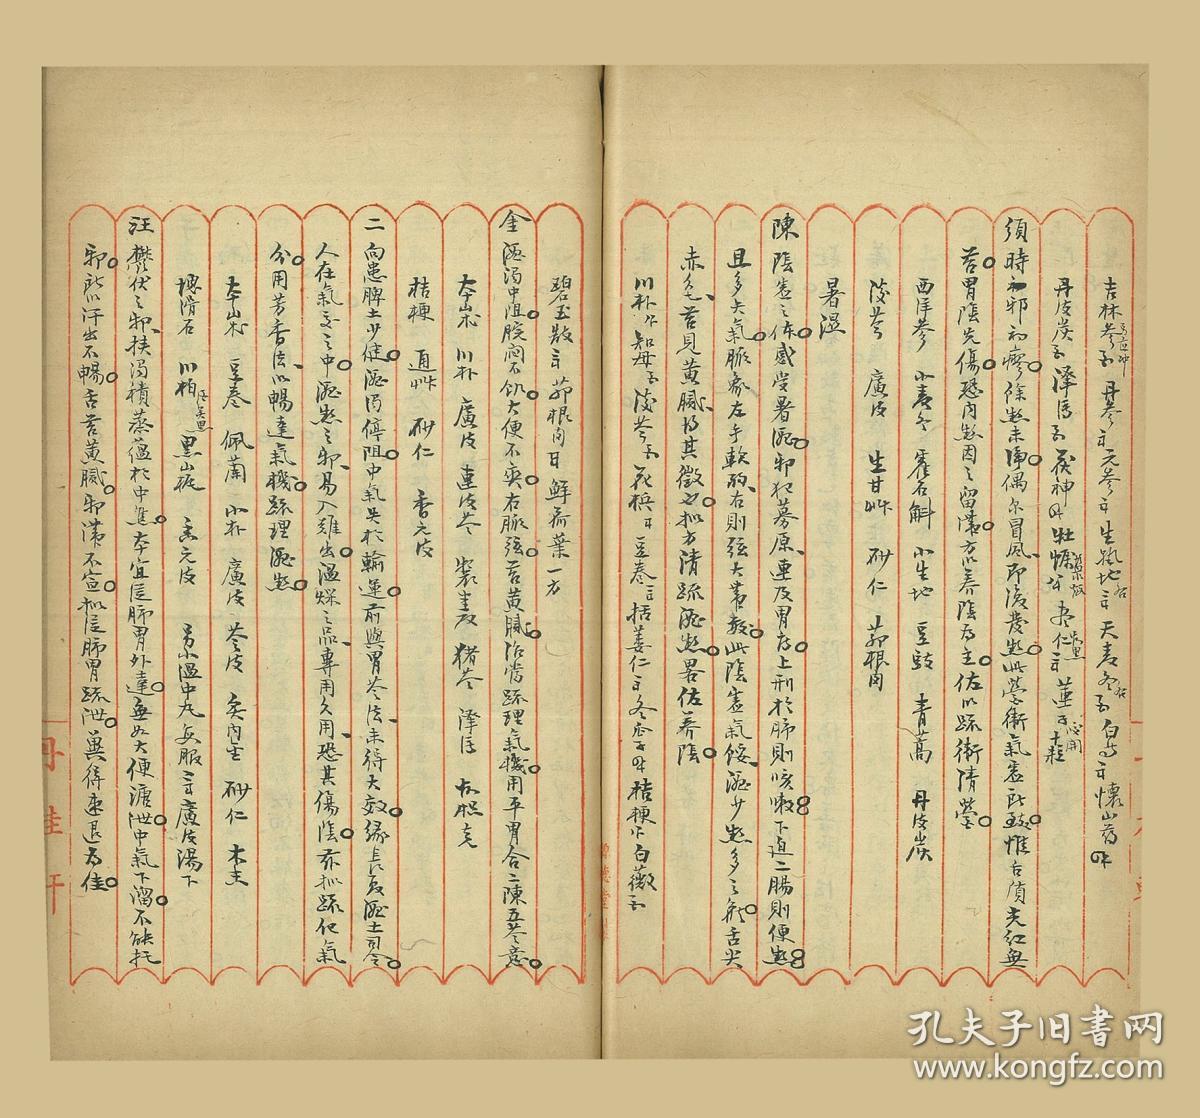 吉林參 丹參 元參 生地 天麥冬 白芍 懷山藥
丹皮炭 澤瀉 茯神 牡蠣 棗仁 蓮子十粒
須 時初邪初瘳餘熱未淨偶尔冒風即復發熱此營衛氣虛所致惟舌質光紅無
苔胃陰先傷恐內熱因之留滯方以養陰為主佐以疏衛清營
西洋參 小麦冬 霍石斛 小生地 豆豉 青蒿 丹皮炭
淡芩 廣皮 生甘艸 砂仁 茆根肉
暑湿
陳 陰虛之体感受暑濕邪犯募原連及胃府上刑於肺則咳嗽下迫二腸則便熱
且多矢氣脈象左手軟 右則弦大 數此陰虛氣餒濕少熱多之 舌尖
赤色苔見黃膩 其徵也拟方清疏濕熱畧佐養陰
川朴 知母 淡芩 花梹 豆卷 括蔞仁 冬瓜子 桔梗 白薇
碧玉散 茆根肉 鮮荷葉一方
金 濕濁中阻脘悶不飢大便不爽右脈弦苔黃膩治當疏理氣機用平胃合二陳五苓意
茅山朮 川朴 廣皮 連皮苓 製半夏 猪苓 澤瀉 枳壳
桔梗 通艸 砂仁 香元皮
二 向患脾土少健濕濁停阻中氣失於輸運前與胃苓法未得大效緣長夏濕土司令
人在氣交之中濕熱之邪易入難出溫燥之品專用久用恐其傷陰茲拟疏化氣
分用芳香法以暢達氣機疏理濕熱
茅山朮 豆卷 佩蘭 小朴 廣皮 苓皮 炙内金 砂仁 木瓜
塊滑石 川柏 黑山梔 香元皮 另小溫中丸每服 廣皮湯下
汪 鬱伏之邪挟濁積蒸蘊於中焦本宜從肺胃外達無如大便溏泄中氣下溜不能托
邪所以汗出不暢舌苔黃膩邪滯不宣拟從肺胃疏泄兾得速退為佳
丹桂軒
孔夫子旧书网
www.kongfz.com